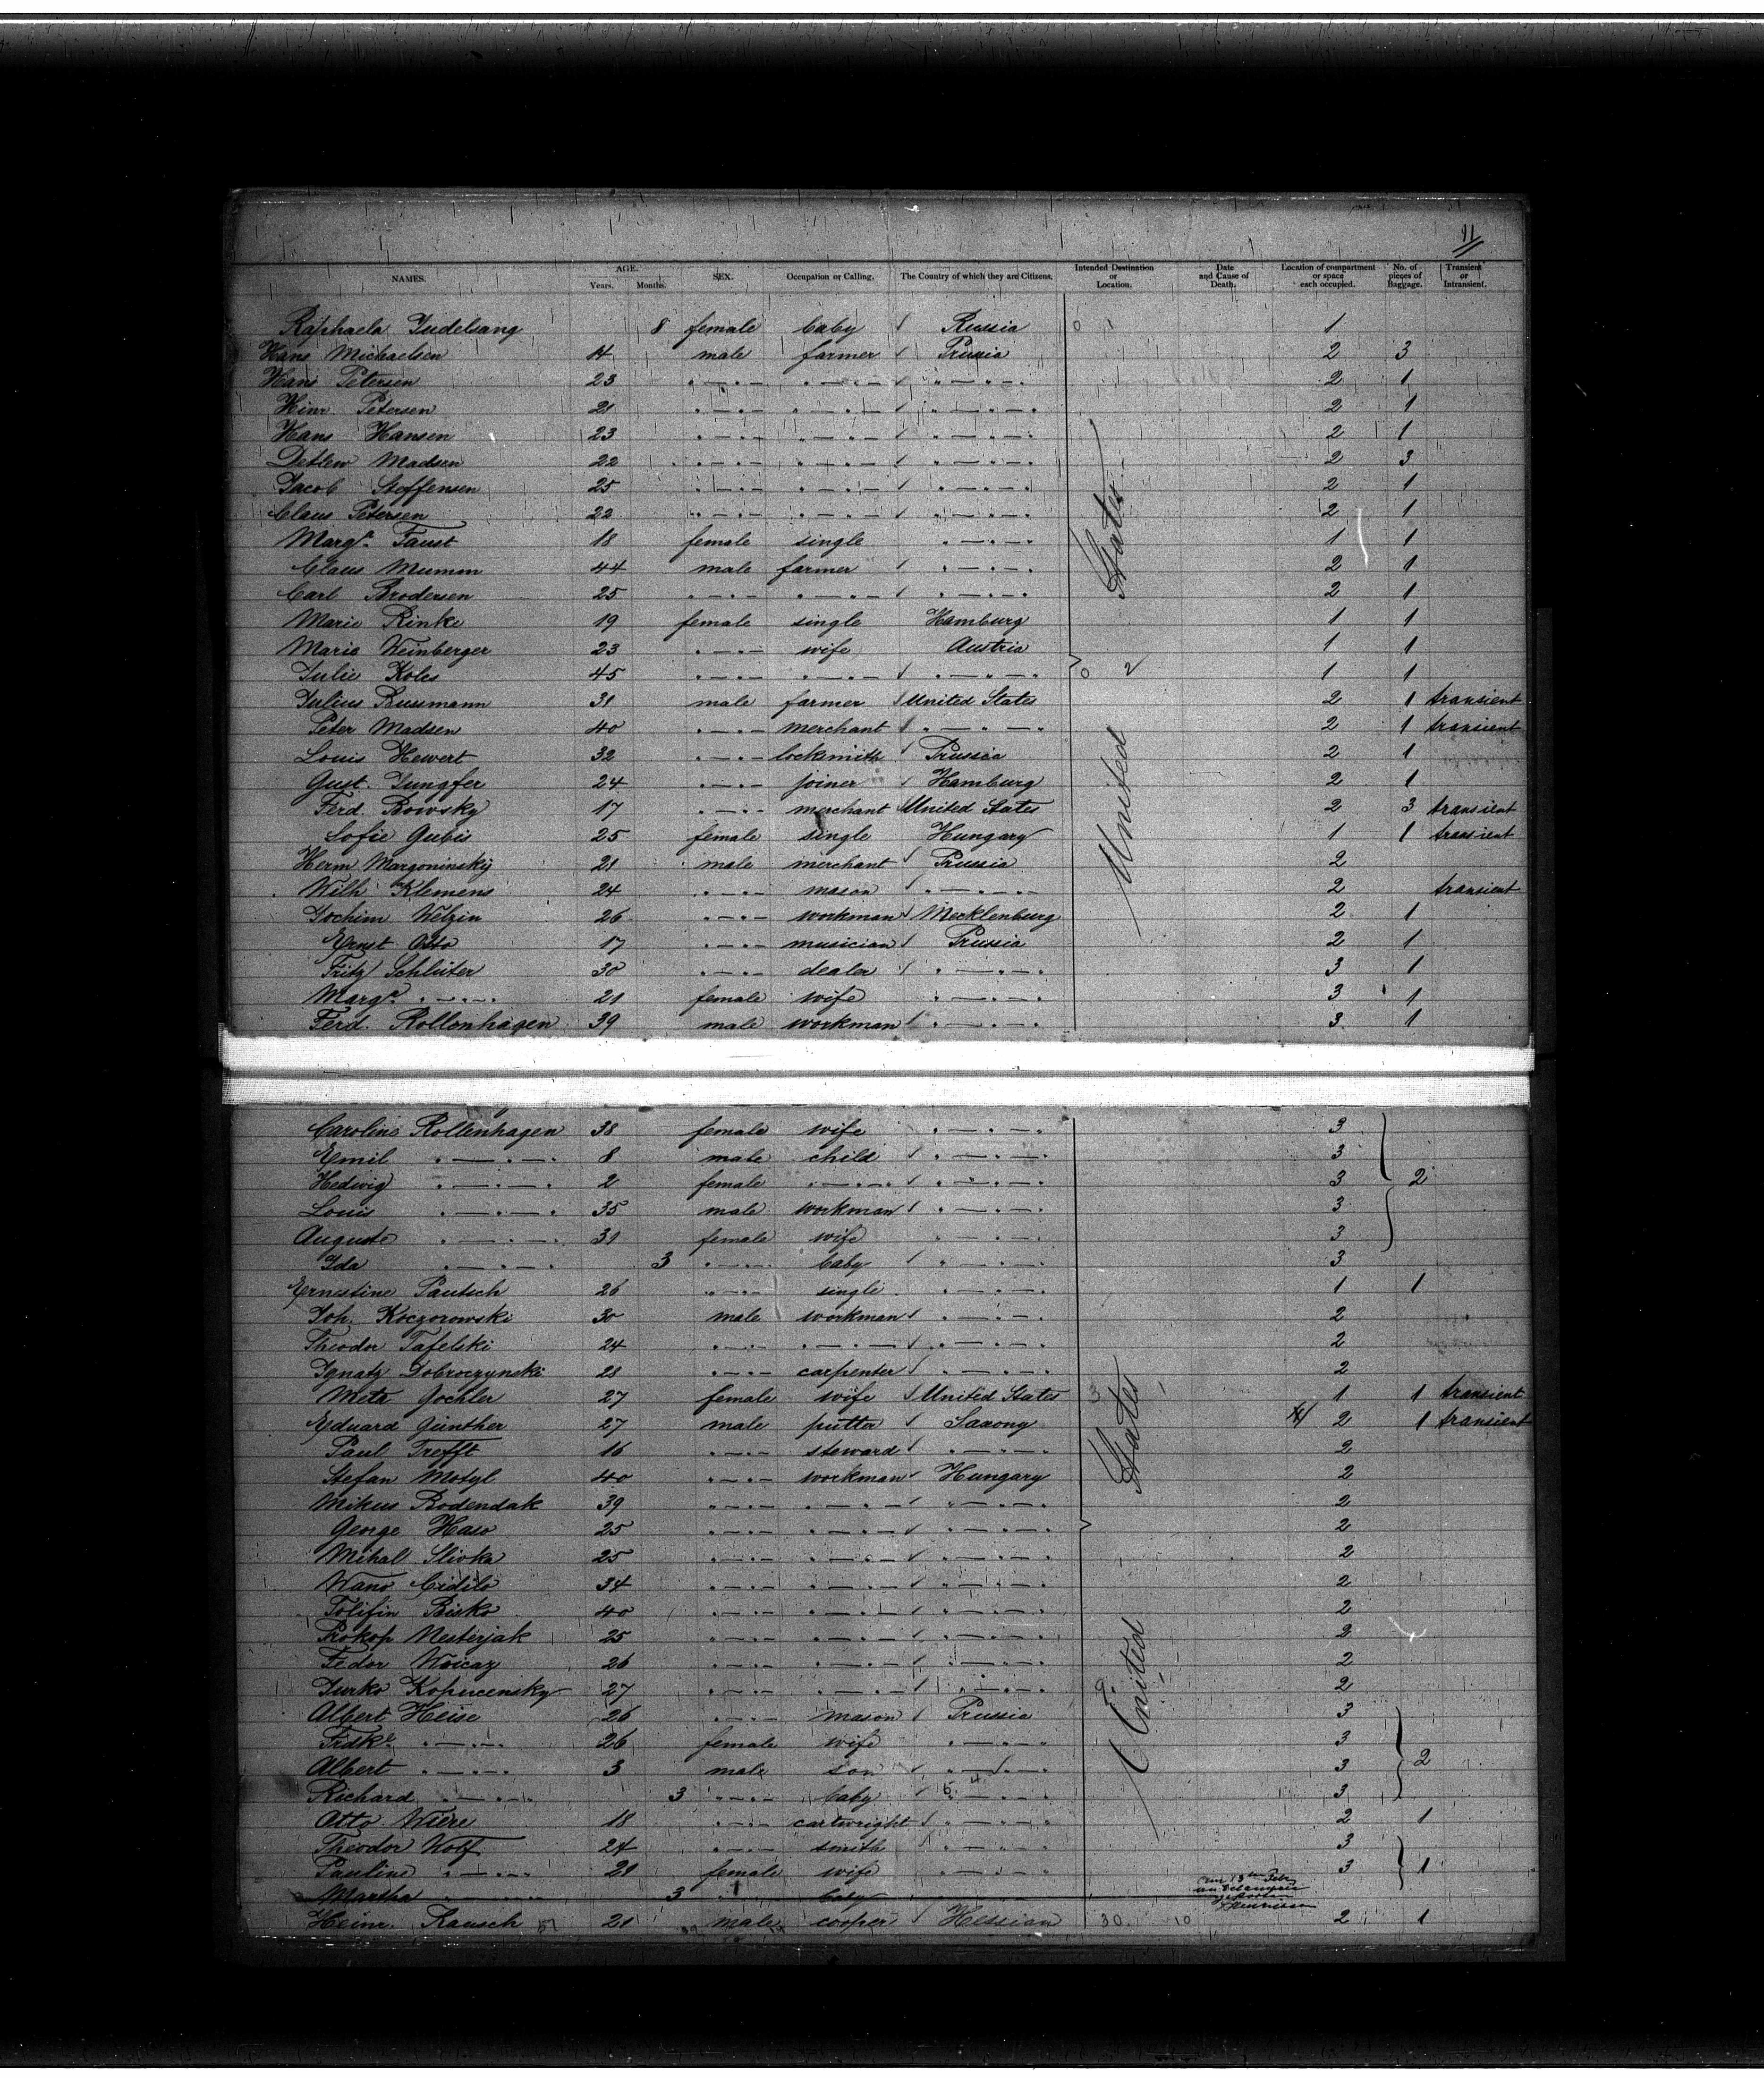 11
NAMES. AGE. Years. Months. SEX. Occupation or Calling. The Country of which they are Citizens. Intended Destination or Location. Date and Cause of Death. Location of compartment or space each occupied. No. of pieces of Baggage. Transient or Intransient.
Raphaela Judelsang 8 female baby Russia 1
Hans Michaelsen male farmer Prussia 2 3
Hans Petersen 23 " " " 2 1
Hinr. Petersen 21 " " " 2 1
Hans Hansen 23 " " " 2 1
Detlew Madsen 22 " " " 2 3
Jacob Steffensen 25 " " " 2 1
Claus Petersen 22 " " " 2 1
Marg. Faust 18 female single " 1 1
Claus Mumm 44 male farmer " 2 1
Carl Brodersen 25 " " " 2 1
Marie Rinke 19 female single Hamburg 1 1
Marie Weinberger 23 " wife Austria 1 1
Julie Koles 45 " " " 1 1
Julius Bussmann 31 male farmer United States 2 1 transient
Peter Madsen 40 " merchant " 2 1 transient
Louis Hewert 32 " locksmith Prussia 2 1
Gust. Jungfer 24 " joiner Hamburg 2 1
Ferd. Bowsky 17 " merchant United States 2 3 transient
Sofie Gubis 25 female single Hungary 1 1 transient
Herm. Margoninsky 21 male merchant Prussia 2
Wilh. Klemens 24 " mason " 2 transient
Jochim Welzin 26 " workman Mecklenburg 2 1
Ernst Otto 17 " musician Prussia 2 1
Fritz Schlüter 30 " dealer " 3 1
Marg. " 21 female wife " 3 1
Ferd. Rollenhagen 39 male workman " 3 1
United States
Caroline Rollenhagen 38 female wife " 3
Emil " 8 male child " 3
Hedwig " 2 female " " 3 2
Louis " 35 male workman " 3
Auguste " 31 female wife " 3
Ida " 3 " baby " 3
Ernestine Pautsch 26 " single " 1 1
Joh. Koczorowski 30 male workman " 2
Theodor Tafelski 24 " " " 2
Ignatz Dobroczynski 28 " carpenter " 2
Meta Gochler 27 female wife United States 1 1 transient
Eduard Günther 27 male putter Saxony 2 1 transient
Paul Trefft 16 " steward " 2
Stefan Motyl 40 " workman Hungary 2
Mikus Bodendak 39 " " " 2
George Haso 25 " " " 2
Mihal Slivka 25 " " " 2
Wano Cidilo 34 " " " 2
Tolifin Bisko 40 " " " 2
Prokop Nesterjak 25 " " " 2
Fedor Woicaz 26 " " " 2
Jurko Kopucensky 27 " " " 2
Albert Heise 26 " mason Prussia 3
Frdke. " 26 female wife " 3
Albert " 3 male son " 3 2
Richard " 3 " baby " 3
Otto Wiere 18 " cartwright " 2 1
Theodor Wolf 24 " smith " 3
Pauline " 21 female wife " 3 1
Martha " 3 " baby
Heinr. Rausch 21 male cooper Hessian 30 10 2 1
United States